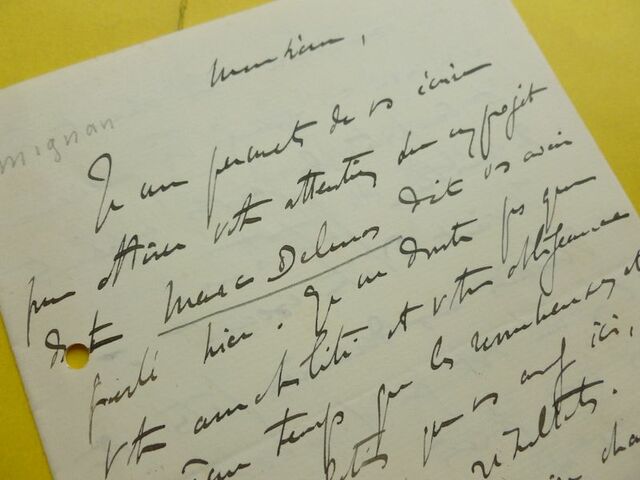 Monsieur,
mignan
Je me permets de vs écrire
pour attirer votre attention sur projet
dont Marc Delmas dit vs avoir
parlé hier. Je ne doute pas que
votre amabilité et votre obligeance
temps que les nombreuses et
que vs ici,
résultats.